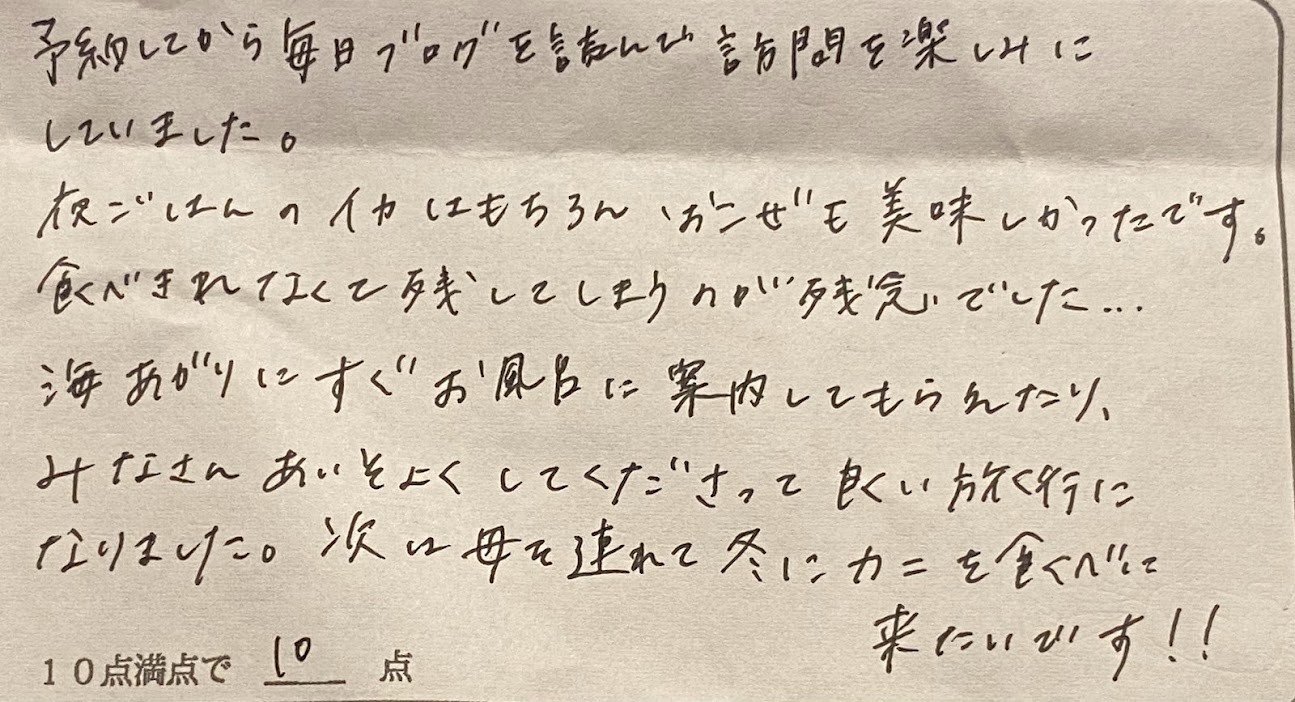 予約してから毎日ブログを読んで訪問を楽しみに
していました。
夜ごはんのイカはもちろん、おこぜも美味しかったです。
食べきれなくて残してしまうのが残念でした…
海あがりにすぐお風呂に案内してもらえたり、
みなさんあいそよくしてくださって良い旅行に
なりました。次は母を連れて冬にカニを食べに
来たいです!!
10点満点で 10 点